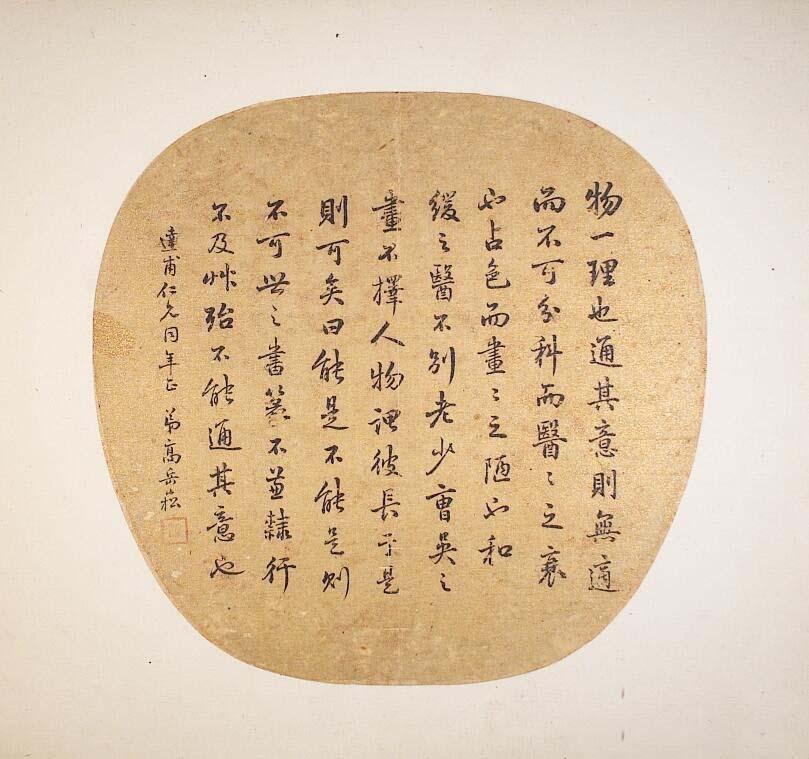 物一理也通其意則無適
而不可分科而醫〻之衰
也占色而畫〻之陋也和
緩之醫不別老少曹吳之
畫不擇人物謂彼長于是
則可矣曰能是不能是則
不可世之書篆不兼隸行
不及艸殆不能通其意也
達甫仁兄同年正 弟高岳崧